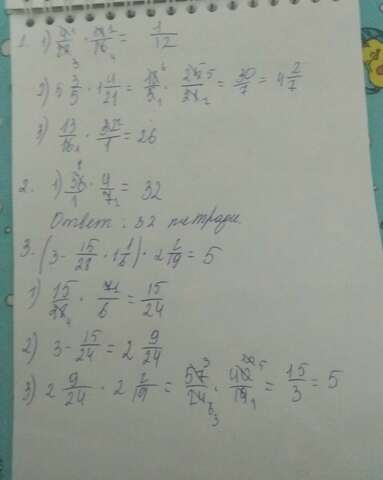 1. 1) = 1/12
2) 3 3/5 · 1 4/21 = 18/5 · 25/21 = 30/7 = 4 2/7
3) 13/16 · 32/1 = 26
2. 1) 56/1 · 4/7 = 32
Ответ: 32 тетради.
3. (3 - 15/28 · 1 1/6) · 2 2/19 = 5
1) 15/28 · 7/6 = 15/24
2) 3 - 15/24 = 2 9/24
3) 2 9/24 · 2 2/19 = 57/24 · 40/19 = 15/3 = 5